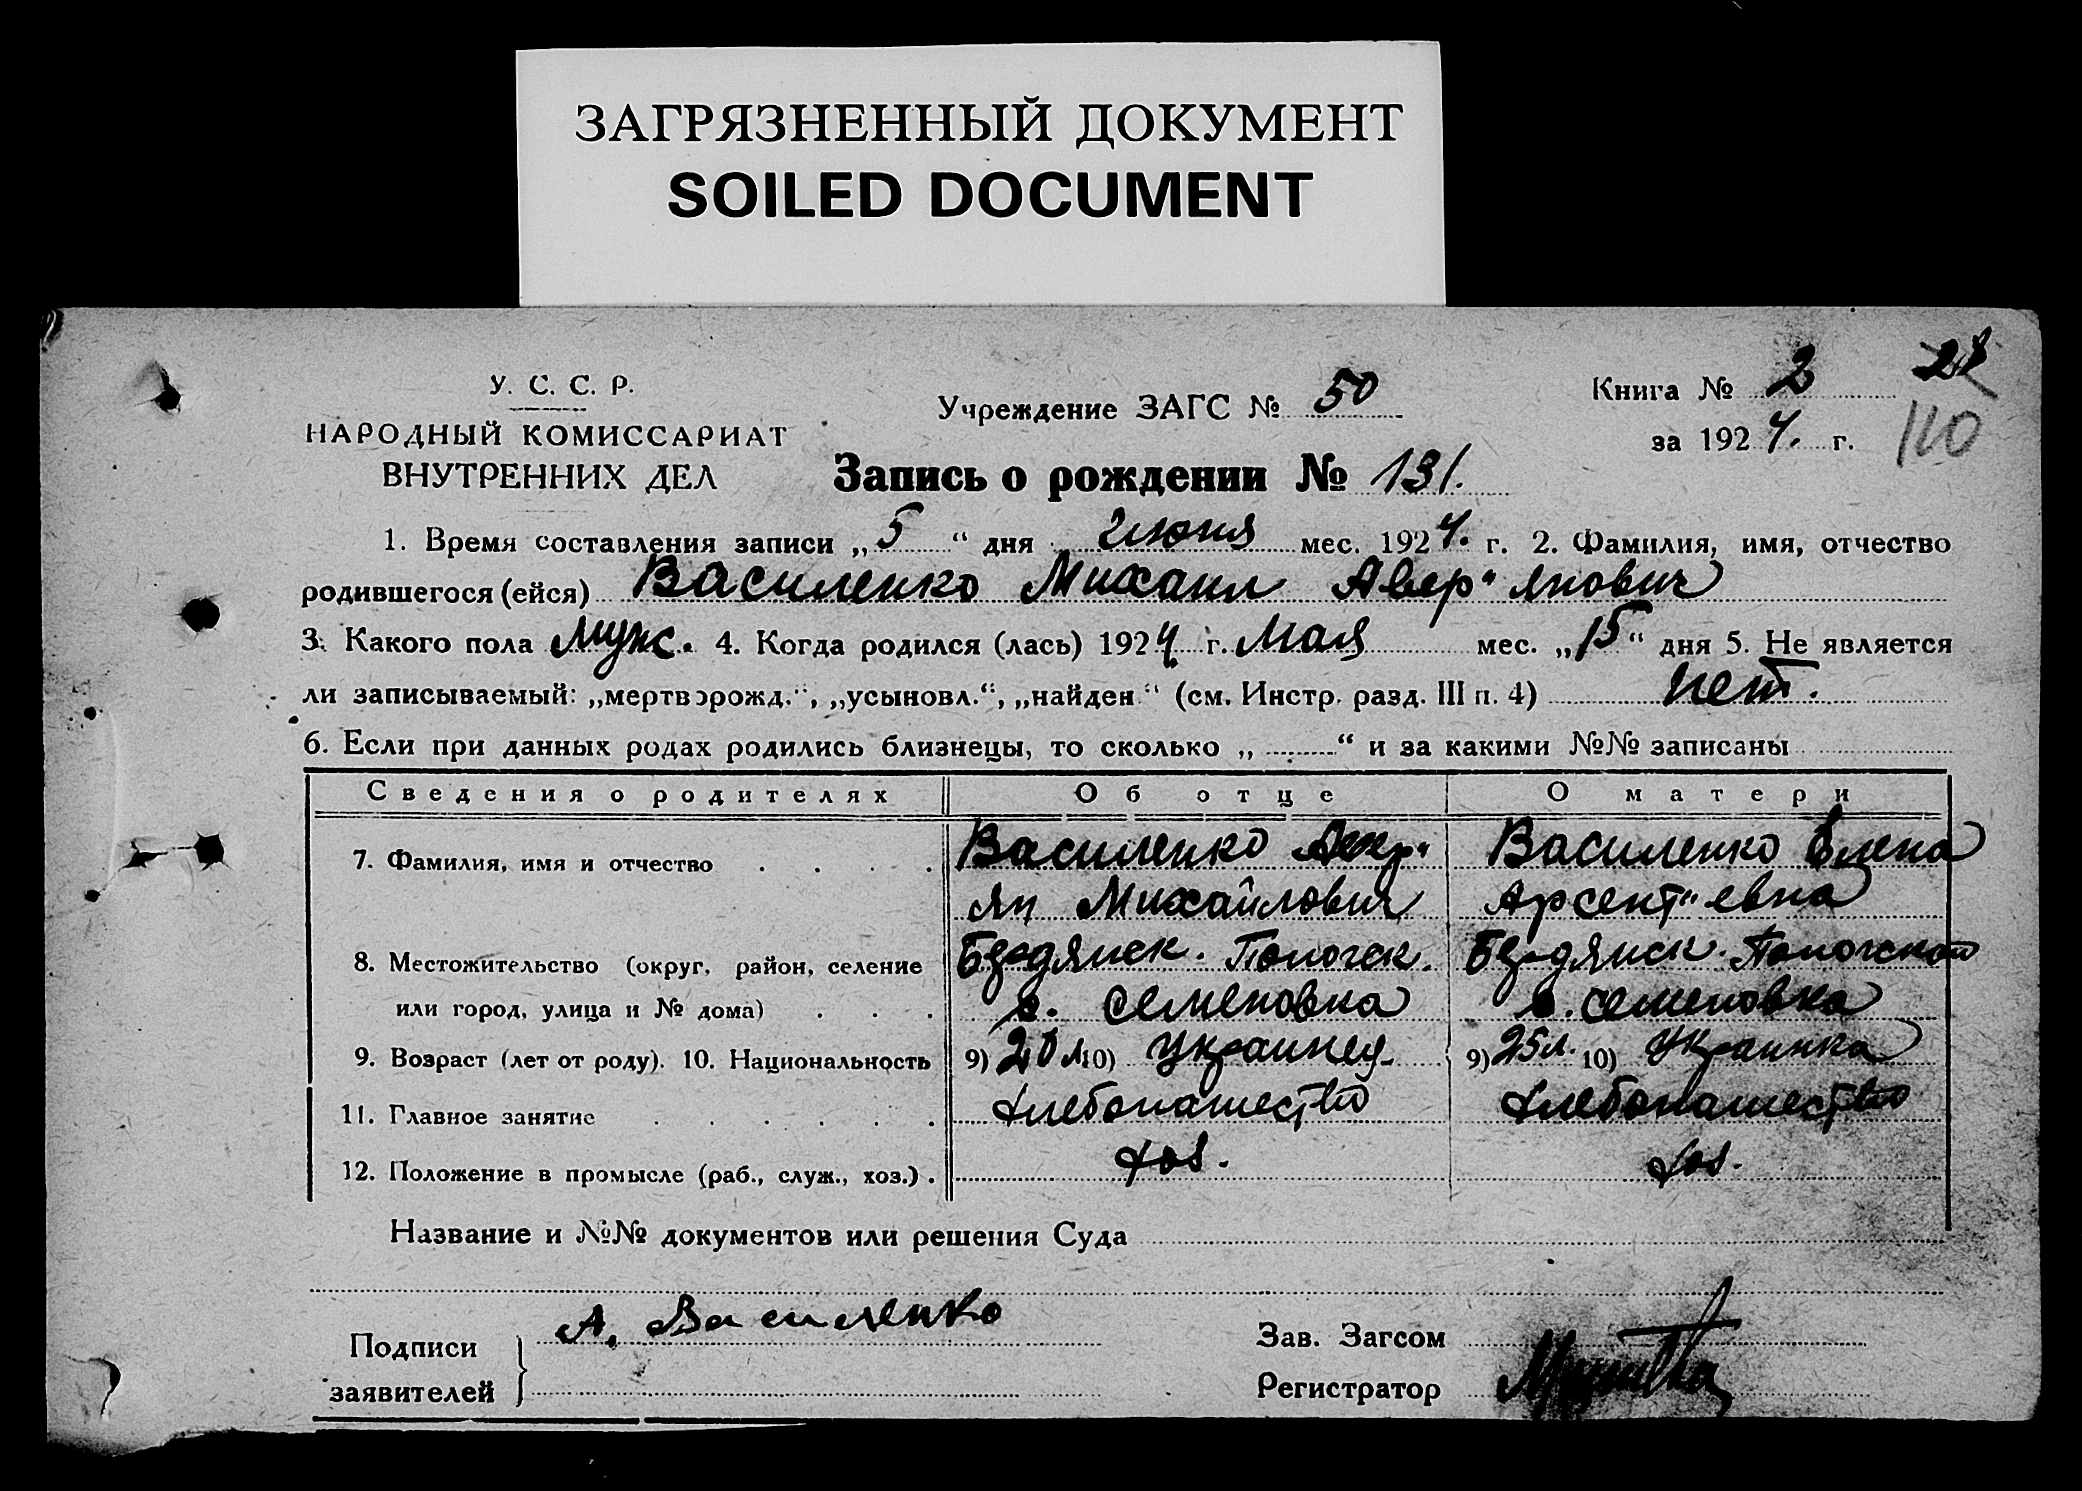 ЗАГРЯЗНЕННЫЙ ДОКУМЕНТ
SOILED DOCUMENT
У. С. С. Р.
НАРОДНЫЙ КОМИССАРИАТ
ВНУТРЕННИХ ДЕЛ
Учреждение ЗАГС № 50
Книга № 2
28
за 1924. г.
110
Запись о рождении № 131.
1. Время составления записи „5“ дня июня мес. 1924. г. 2. Фамилия, имя, отчество
родившегося (ейся) Василенко Михаил Авер"янович
3. Какого пола Муж. 4. Когда родился (лась) 1924 г. Мая мес. „15“ дня 5. Не является
ли записываемый: „мертворожд.“, „усыновл.“, „найден“ (см. Инстр. разд. III п. 4) нет.
6. Если при данных родах родились близнецы, то сколько „ “ и за какими №№ записаны
Сведения о родителях Об отце О матери
7. Фамилия, имя и отчество Василенко Авер" Василенко Елена
ян Михайлович Арсент"евна
8. Местожительство (округ, район, селение Бердянск. Пологск. Бердянск. Пологской
или город, улица и № дома) с. Семеновка с. Семеновка
9. Возраст (лет от роду). 10. Национальность 9) л. 10) Украинец 9) 25 л. 10) Украинка
11. Главное занятие Хлебопашество Хлебопашество
12. Положение в промысле (раб., служ., хоз.) Хоз. Хоз.
Название и №№ документов или решения Суда
Подписи А. Василенко Зав. Загсом
заявителей Регистратор